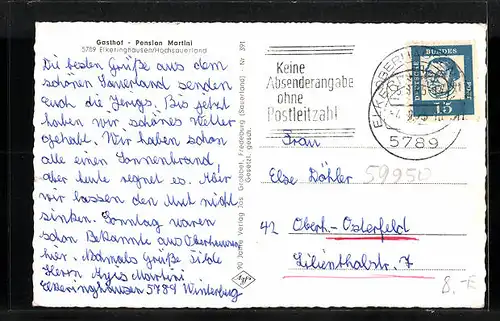 Gasthof - Pension Martini
5789 Elkeringhausen/Hochsauerland
Die besten Grüße aus dem
schönen Sauerland senden
euch die Jungs. Bis jetzt
haben wir schönes Wetter
gehabt. Wir haben schon
alle einen Sonnenbrand,
aber heute regnet es. Aber
wir lassen den Mut nicht
sinken. Sonntag waren
schon Bekannte aus Oberhausen
hier. Grüße
Herrn Martini
Elkeringhausen 5789 Winterberg
90 Jahre Verlag Jos. Grobbel, Fredeburg (Sauerland) Nr. 391
Gesetzl. gesch.
Agfa
Keine
Absenderangabe
ohne
Postleitzahl
5789
DEUTSCHE BUNDESPOST
15
Frau
Else Döhler
59950
42 Oberh.-Osterfeld
Lilienthalstr. 7
8.-